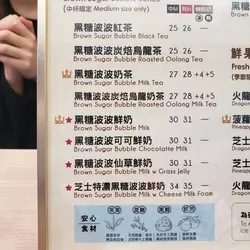 (中杯限定 Medium size only)
黑糖波波紅茶 25 26 —
Brown Sugar Bubble Black Tea
黑糖波波炭焙烏龍茶 25 26 —
Brown Sugar Bubble Roasted Oolong Tea
黑糖波波奶茶 27 28 +4 +5
Brown Sugar Bubble Milk Tea
黑糖波波炭焙烏龍奶茶 27 28 +4 +5
Brown Sugar Bubble Roasted Oolong Milk Tea
黑糖波波鮮奶 30 31 —
Brown Sugar Bubble Milk
黑糖波波可可鮮奶 30 31 —
Brown Sugar Bubble Chocolatte Milk
黑糖波波仙草鮮奶 30 31 —
Brown Sugar Bubble Milk w Grass Jelly
芝士特濃黑糖波波鮮奶 34 35 —
Brown Sugar Bubble Milk w Cheese Milk Foam
安心
食材
鮮果
Fresh
(季節限
火龍
Dragon
火龍
Dragon
菠蘿
Pineapp
火龍
Dragon
火龍
Dragon